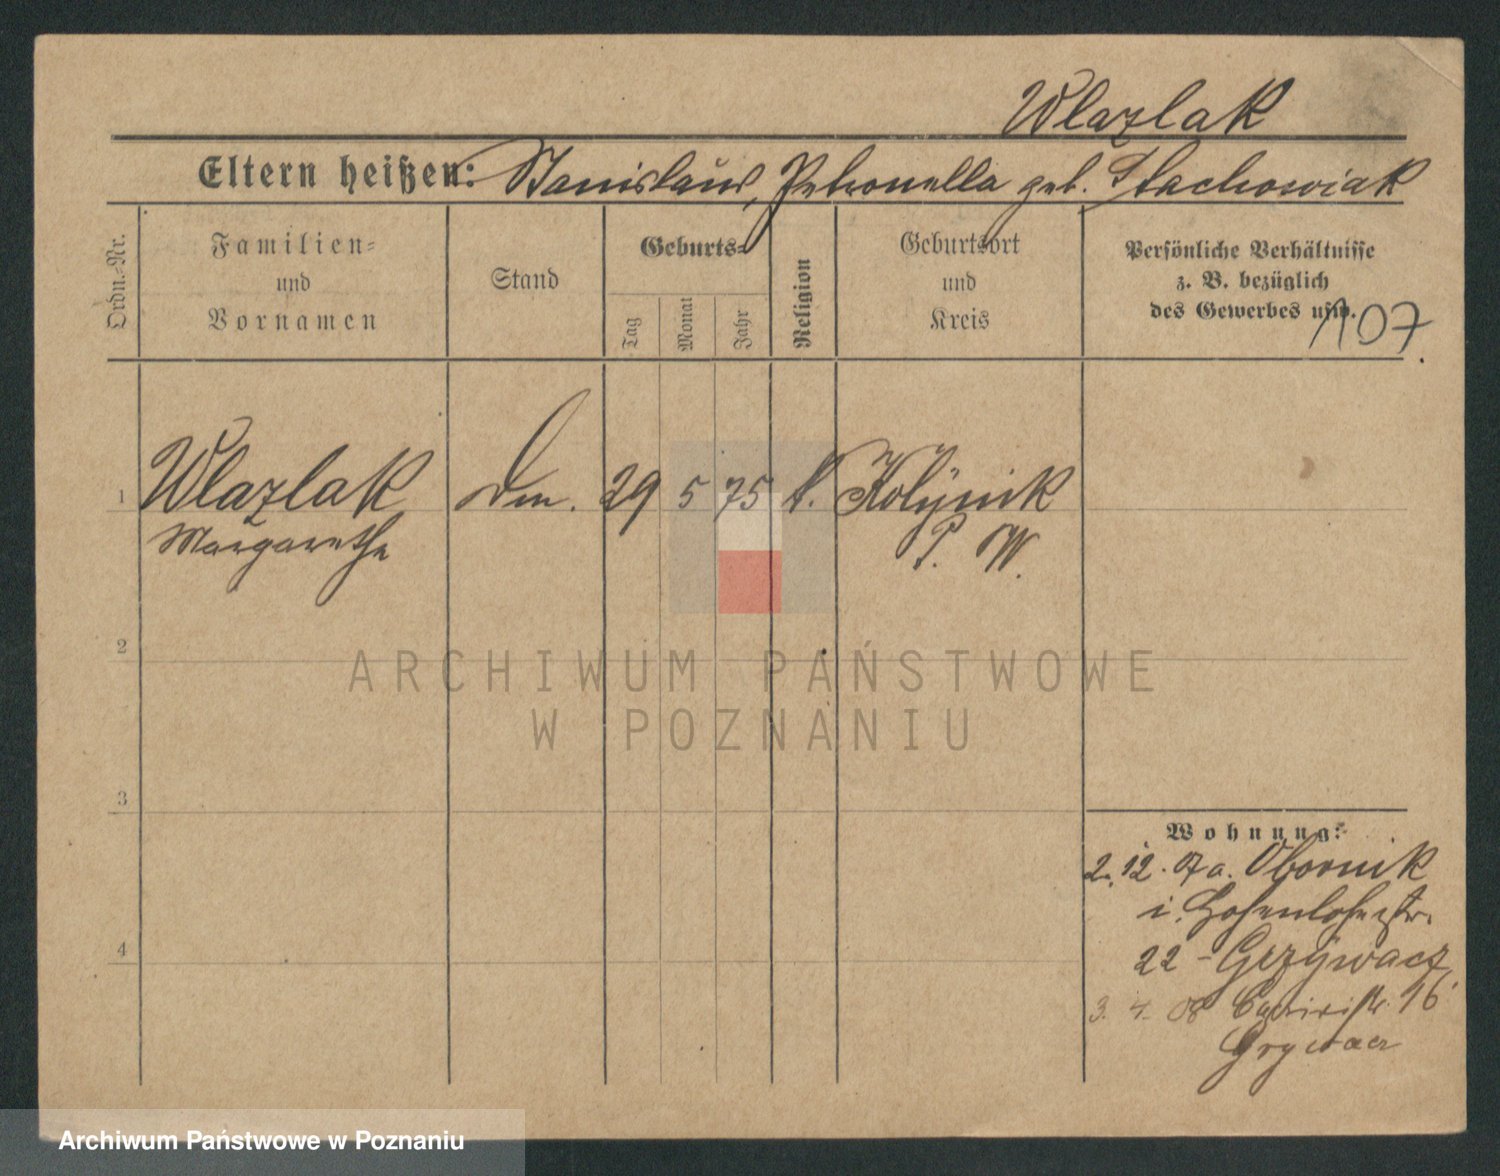 Wlazlak
Eltern heißen: Stanislaus, Petronella geb. Stachowiak
Ordn.-Nr.
Familien-
und
Vornamen
Stand
Geburts-
Tag
Monat
Jahr
Religion
Geburtsort
und
Kreis
Persönliche Verhältnisse
z. B. bezüglich
des Gewerbes usw.
107.
1 Wlazlak 29 5 75 k.
Margarethe P. W.
2
3
4
Wohnung:
2. 12. 07 a. Obornik
i. Hohenlohestr.
22 - Grzywacz
3. 4. 08 16
Grywacz
ARCHIWUM PAŃSTWOWE
W POZNANIU
Archiwum Państwowe w Poznaniu